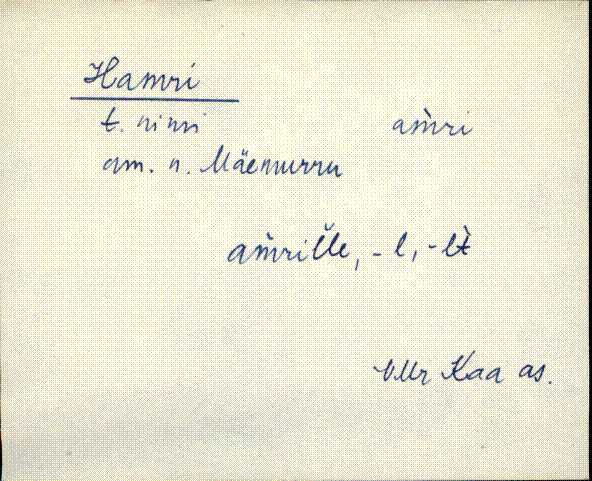 Hamri
t. nimi am̀ri
am. n. Mäemurru
am̀rille, -l, -lt̀
VMr Kaa as.